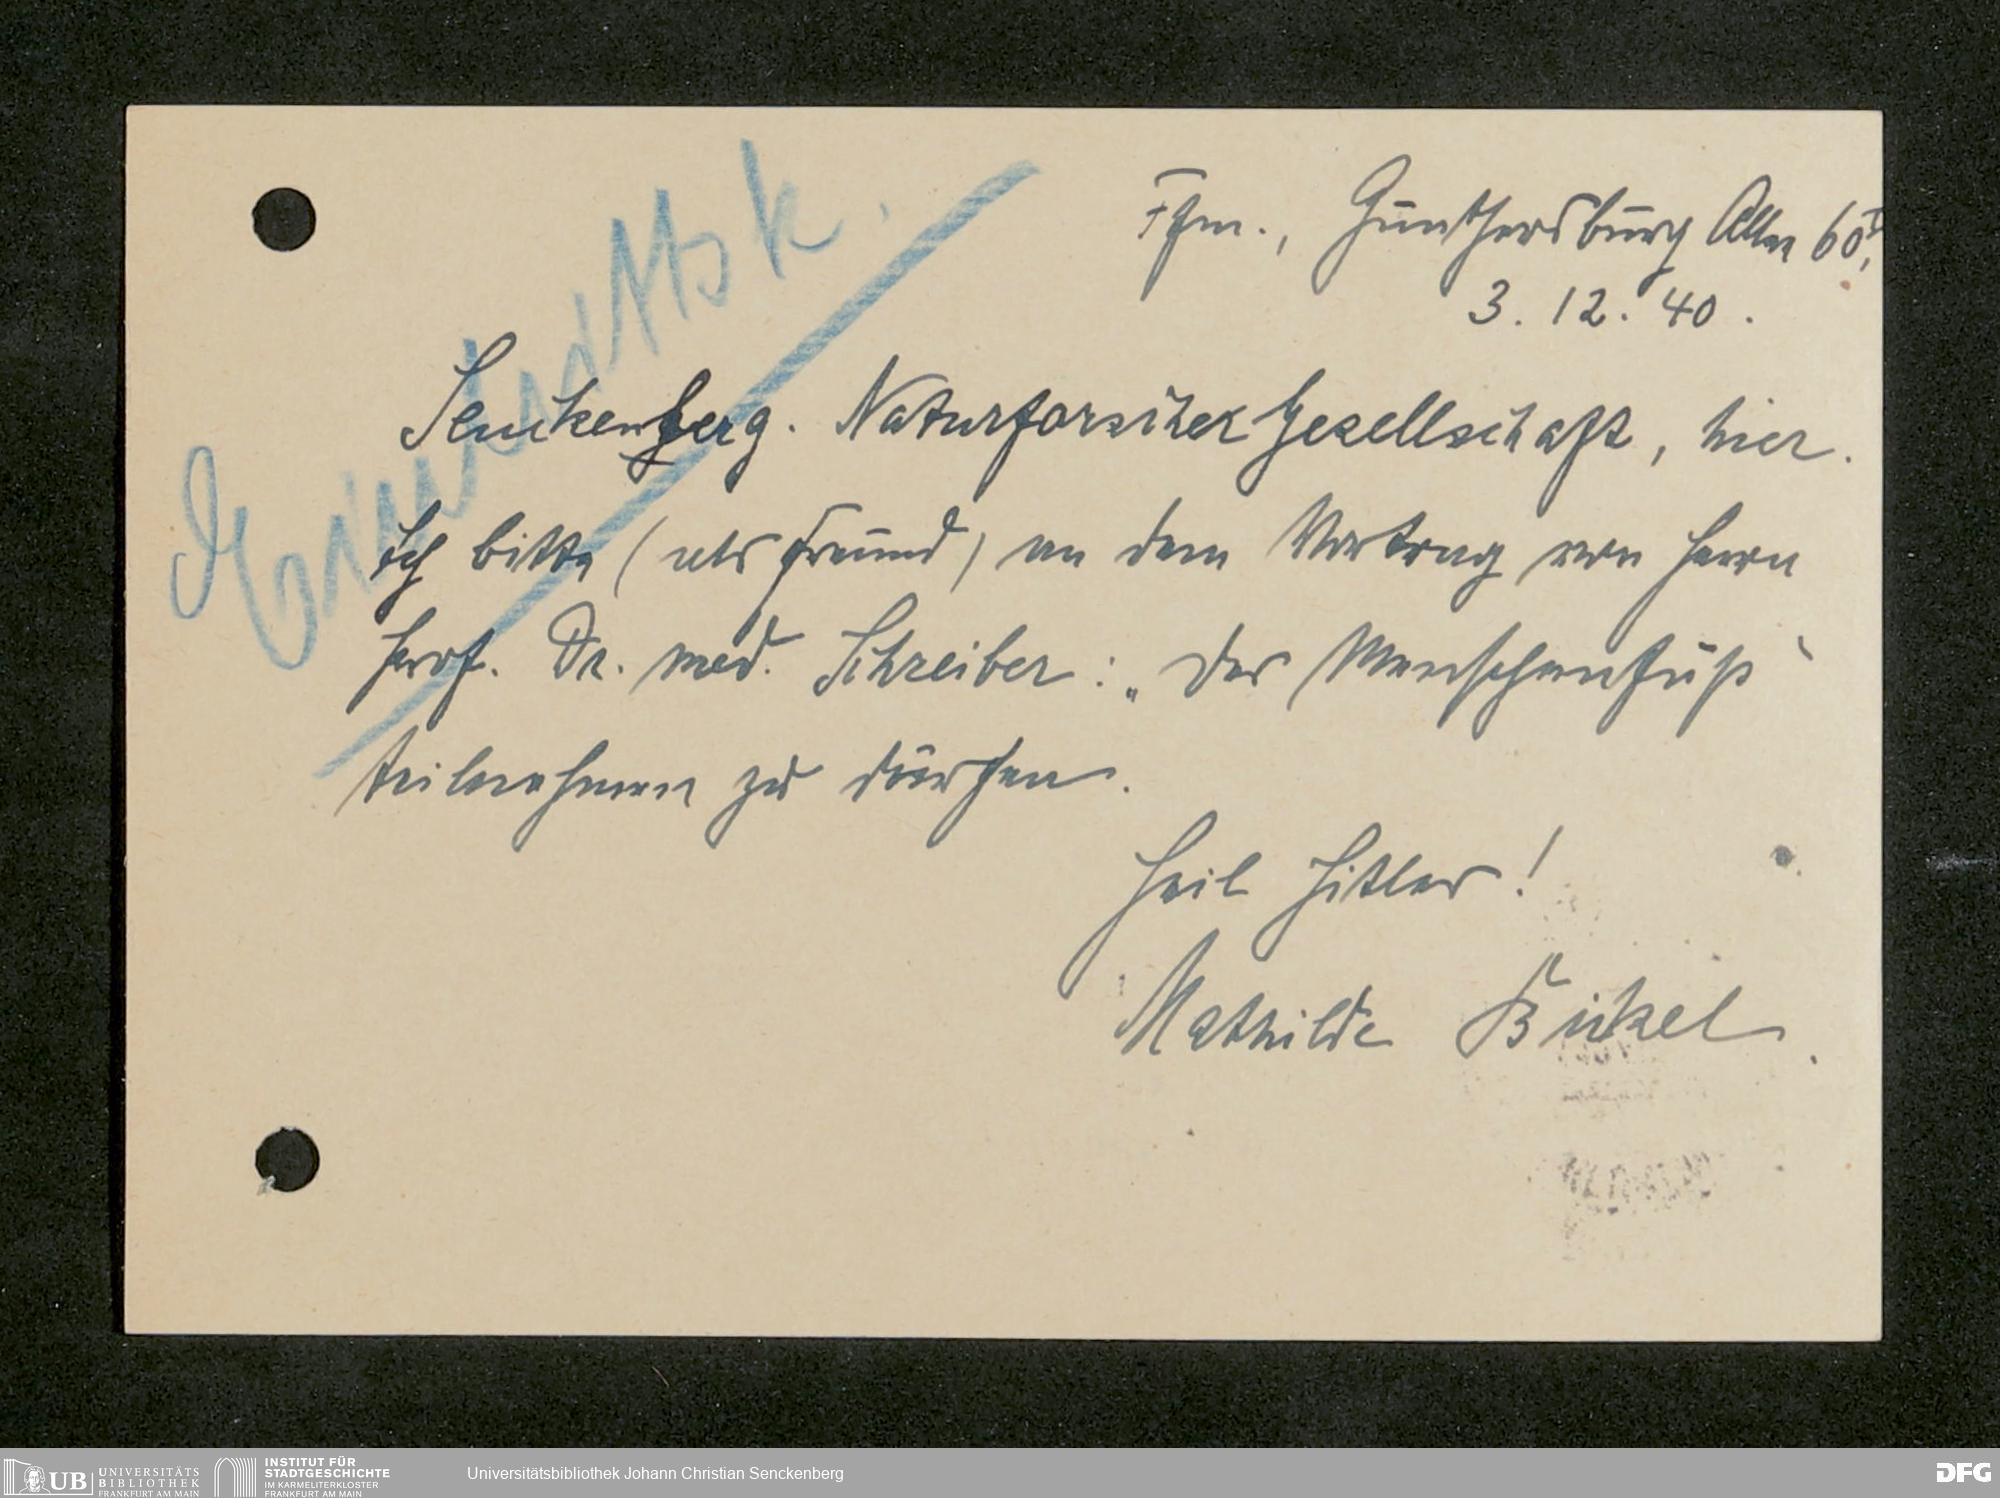 Ffm., Günthersburg Allee 60I,
3. 12. 40.
Senckenberg. Naturforscher Gesellschaft, hier.
Ich bitte (als Freund) an dem Vortrag von Herrn
Prof. Dr. med. Schreiber: „Der Menschenfuß“
teilnehmen zu dürfen.
Heil Hitler!
Mathilde Bickel.
UB UNIVERSITÄTS
BIBLIOTHEK
FRANKFURT AM MAIN
INSTITUT FÜR
STADTGESCHICHTE
IM KARMELITERKLOSTER
FRANKFURT AM MAIN
Universitätsbibliothek Johann Christian Senckenberg
DFG